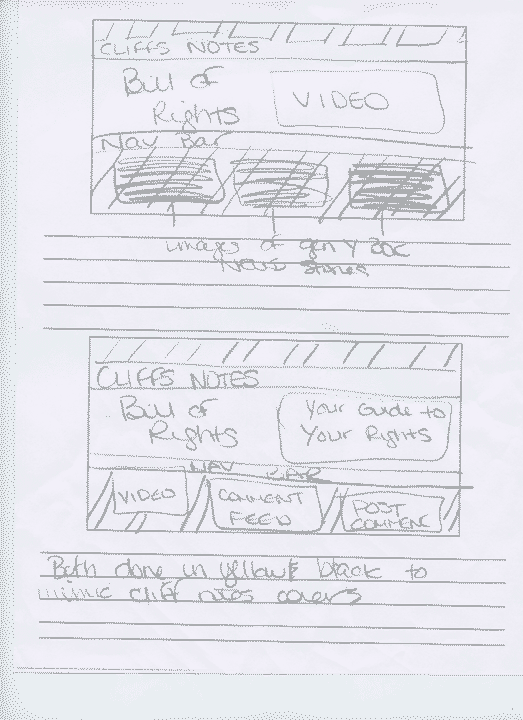 CLIFFS NOTES
Bill of
Rights
VIDEO
Nav Bar
images of gen Y
News stories
CLIFFS NOTES
Bill of
Rights
Your Guide to
Your Rights
NAV BAR
VIDEO
COMMENT
FEED
POST
COMMENT
Both done in yellow & black to
mimic cliff notes covers